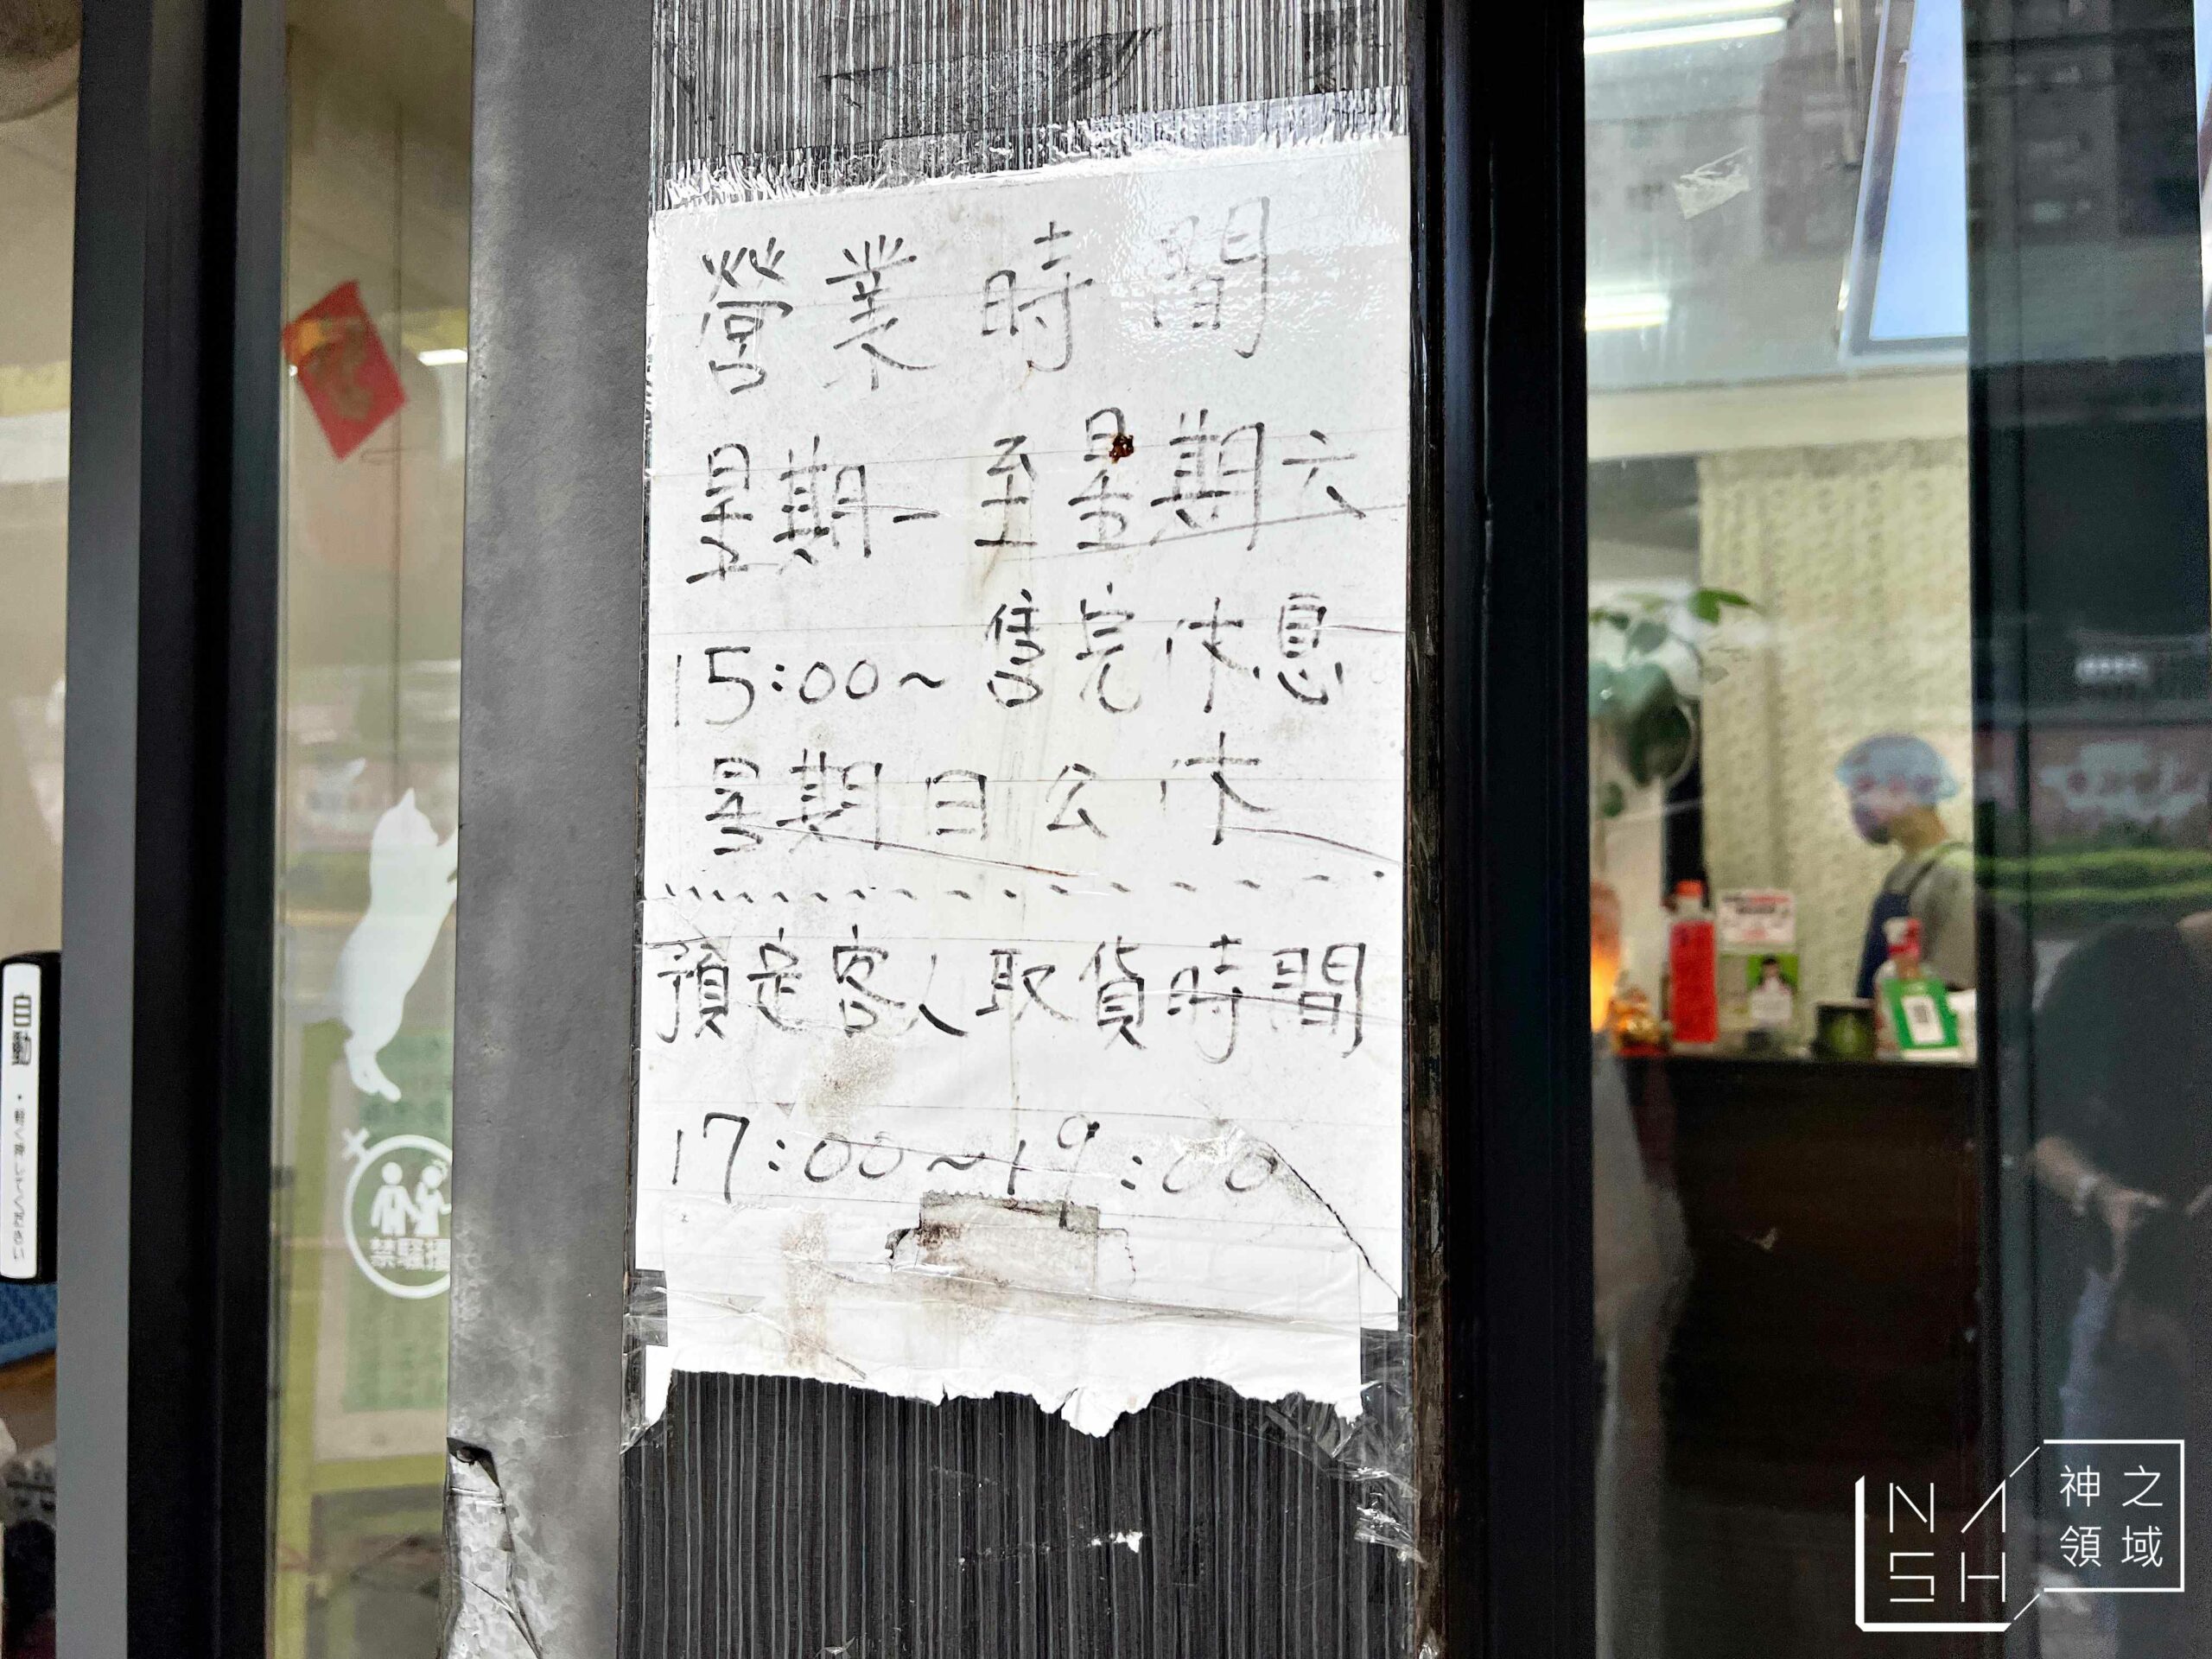 營業時間
星期一至星期六
15:00~售完休息
星期日公休
預定客人取貨時間
17:00~19:00
自動
禁騷擾
NASH
神之
領域